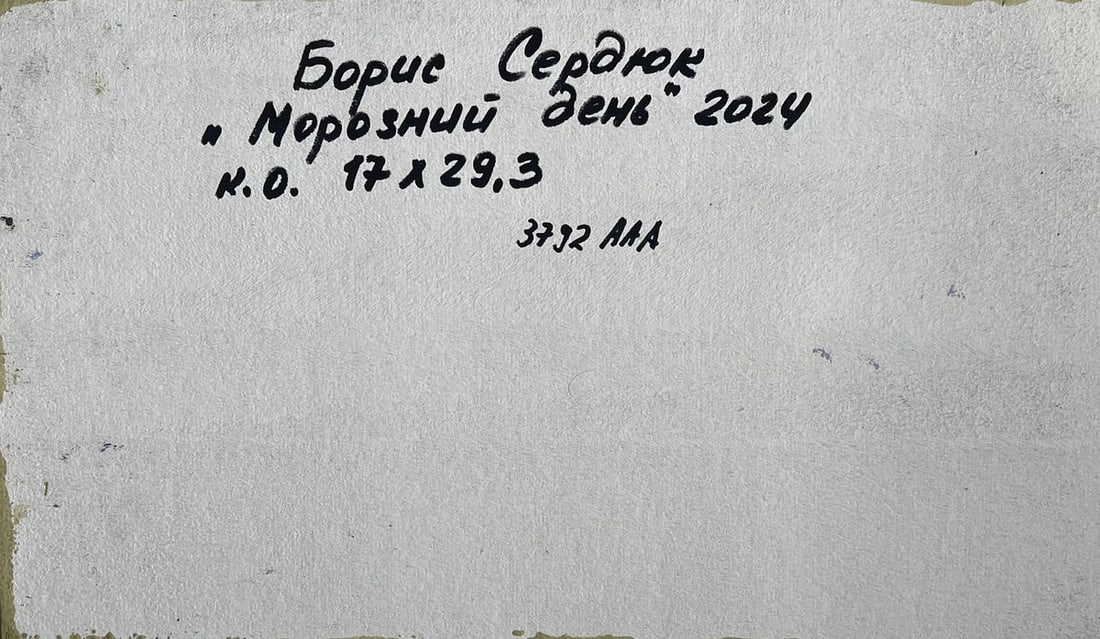 Борис Сердюк
„Морозний день" 2024
к.о. 17 х 29,3
3792 ААА